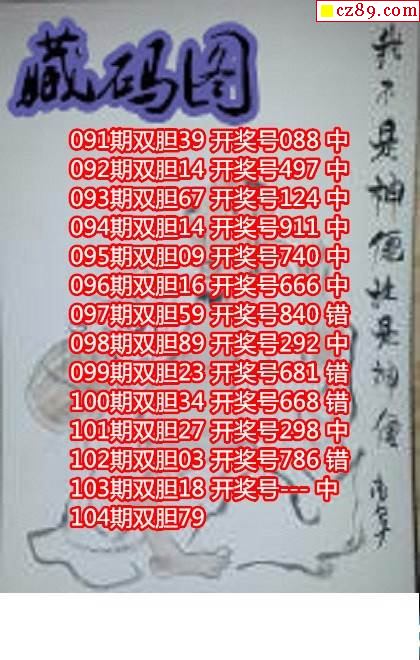 cz89.com
藏码图
091期双胆39 开奖号088 中
092期双胆14 开奖号497 中
093期双胆67 开奖号124 中
094期双胆14 开奖号911 中
095期双胆09 开奖号740 中
096期双胆16 开奖号666 中
097期双胆59 开奖号840 错
098期双胆89 开奖号292 中
099期双胆23 开奖号681 错
100期双胆34 开奖号668 错
101期双胆27 开奖号298 中
102期双胆03 开奖号786 错
103期双胆18 开奖号--- 中
104期双胆79
我不是神仙
是神仙